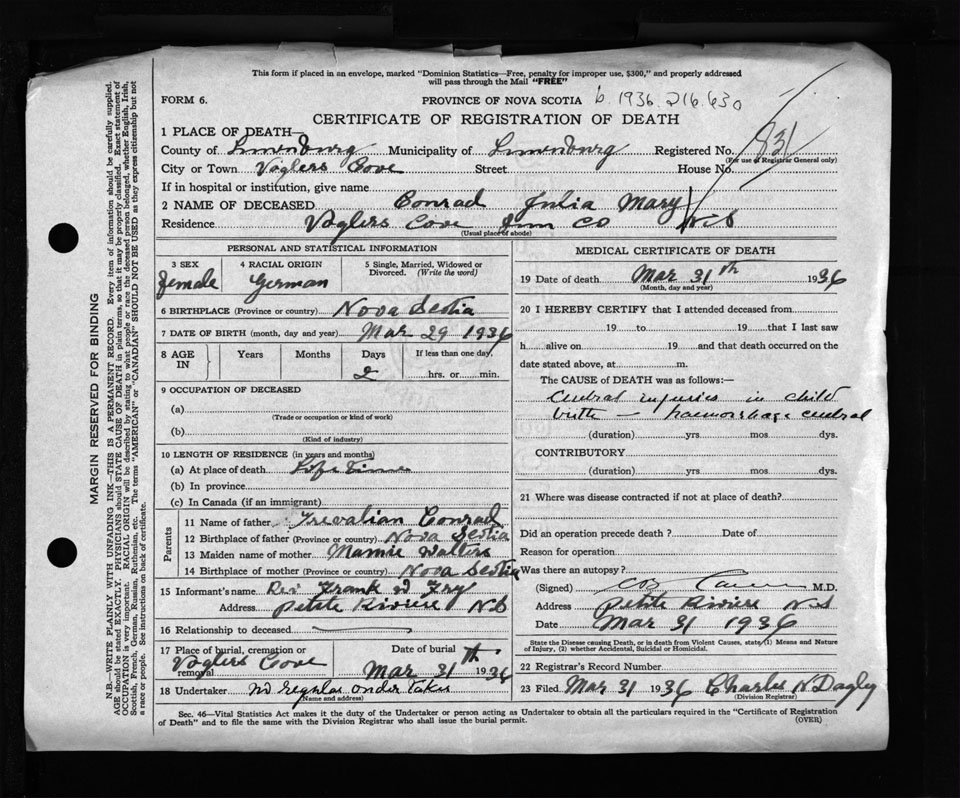 This form if placed in an envelope, marked "Dominion Statistics—Free, penalty for improper use, $300," and properly addressed
will pass through the Mail "FREE"
FORM 6.
PROVINCE OF NOVA SCOTIA b. 1936. 216.630
CERTIFICATE OF REGISTRATION OF DEATH
1 PLACE OF DEATH—
County of Lunenburg Municipality of Lunenburg Registered No. 831
(For use of Registrar General only)
City or Town Voglers Cove Street House No.
If in hospital or institution, give name
2 NAME OF DECEASED Conrad Julia Mary
Residence Voglers Cove Lun Co N.S
(Usual place of abode)
PERSONAL AND STATISTICAL INFORMATION
3 SEX 4 RACIAL ORIGIN 5 Single, Married, Widowed or
Divorced. (Write the word)
female German
6 BIRTHPLACE (Province or country) Nova Scotia
7 DATE OF BIRTH (month, day and year) Mar 29 1936
8 AGE IN Years Months Days If less than one day,
2 hrs. or min.
9 OCCUPATION OF DECEASED
(a)
(Trade or occupation or kind of work)
(b)
(Kind of industry)
10 LENGTH OF RESIDENCE (in years and months)
(a) At place of death Life Time
(b) In province
(c) In Canada (if an immigrant)
Parents
11 Name of father Trevalian Conrad
12 Birthplace of father (Province or country) Nova Scotia
13 Maiden name of mother Mamie Walters
14 Birthplace of mother (Province or country) Nova Scotia
15 Informant's name Rev Frank W Fry
Address Petite Riviere N.S
16 Relationship to deceased
17 Place of burial, cremation or removal Voglers Cove Date of burial Mar 31th 1936
18 Undertaker no regular undertaker
(Name and address)
MEDICAL CERTIFICATE OF DEATH
19 Date of death Mar 31th 1936
(Month, day and year)
20 I HEREBY CERTIFY that I attended deceased from
19 to 19 that I last saw
h alive on 19 and that death occurred on the
date stated above, at m.
The CAUSE of DEATH was as follows:—
Cerebral injuries in child
birth — haemorrhage cerebral
(duration) yrs mos dys.
CONTRIBUTORY
(duration) yrs mos dys.
21 Where was disease contracted if not at place of death?
Did an operation precede death? Date of
Reason for operation
Was there an autopsy?
(Signed) M.D.
Address Petite Riviere N.S
Date Mar 31 1936
State the Disease causing Death, or in death from Violent Causes, state (1) Means and Nature
of Injury, (2) whether Accidental, Suicidal or Homicidal.
22 Registrar's Record Number
23 Filed Mar 31 1936 Charles N Dagley
(Division Registrar)
Sec. 46—Vital Statistics Act makes it the duty of the Undertaker or person acting as Undertaker to obtain all the particulars required in the "Certificate of Registration
of Death" and to file the same with the Division Registrar who shall issue the burial permit.
(OVER)
MARGIN RESERVED FOR BINDING
N.B.—WRITE PLAINLY WITH UNFADING INK—THIS IS A PERMANENT RECORD. Every item of information should be carefully supplied.
AGE should be stated EXACTLY. PHYSICIANS should STATE CAUSE OF DEATH in plain terms, so that it may be properly classified. Exact statement of
OCCUPATION is very important. RACIAL ORIGIN will be described by stating to what people or race the deceased person belonged, whether English, Irish,
Scottish, French, German, Russian, Ruthenian, etc. The terms "AMERICAN" or "CANADIAN" SHOULD NOT BE USED as they express citizenship but not
a race or people. See instructions on back of certificate.